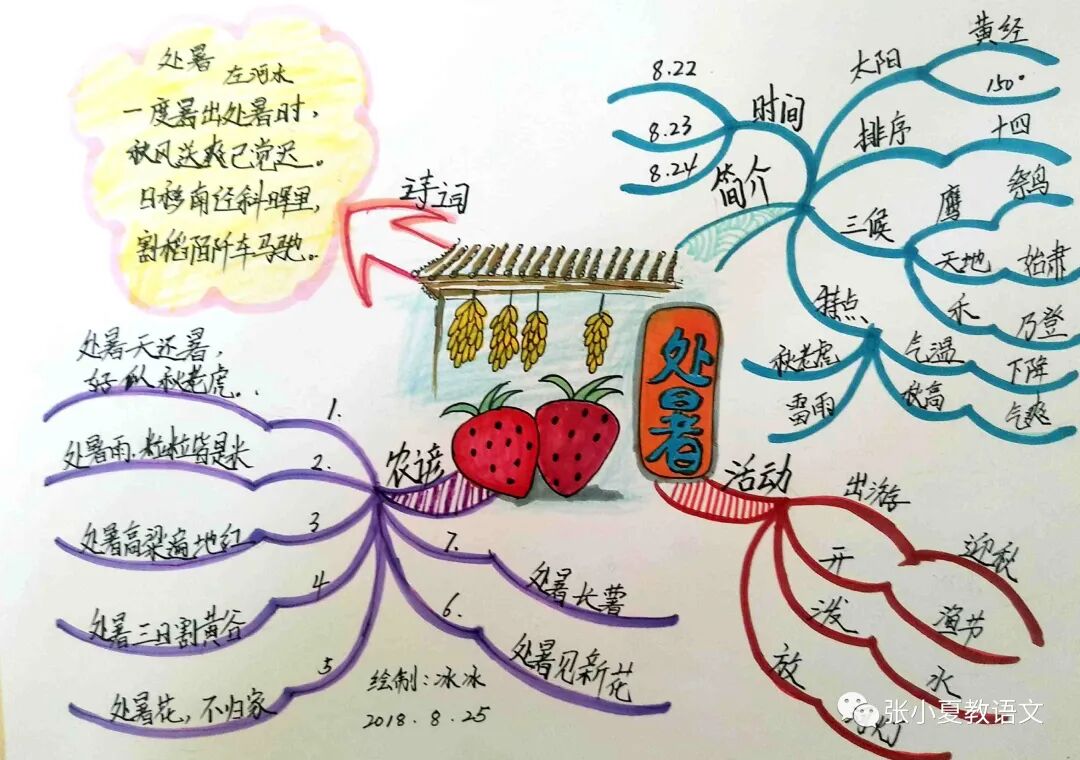 处暑
左河水
一度暑出处暑时，
秋风送爽已觉迟。
日移南径斜晖里，
割稻陌阡车马驰。
诗词
处暑
简介
时间
8.22
8.23
8.24
太阳
黄经
150°
排序
十四
三候
鹰
祭鸟
天地
始肃
禾
乃登
特点
秋老虎
雷雨
气温
下降
秋高
气爽
活动
出游
迎秋
开
渔节
泼
水
放
农谚
1.
处暑天还暑，
好似秋老虎.
2.
处暑雨，粒粒皆是米
3
处暑高粱遍地红
4
处暑三日割黄谷
5
处暑花，不归家
6.
处暑见新花
7.
处暑长薯
绘制：冰冰
2018.8.25
张小夏教语文